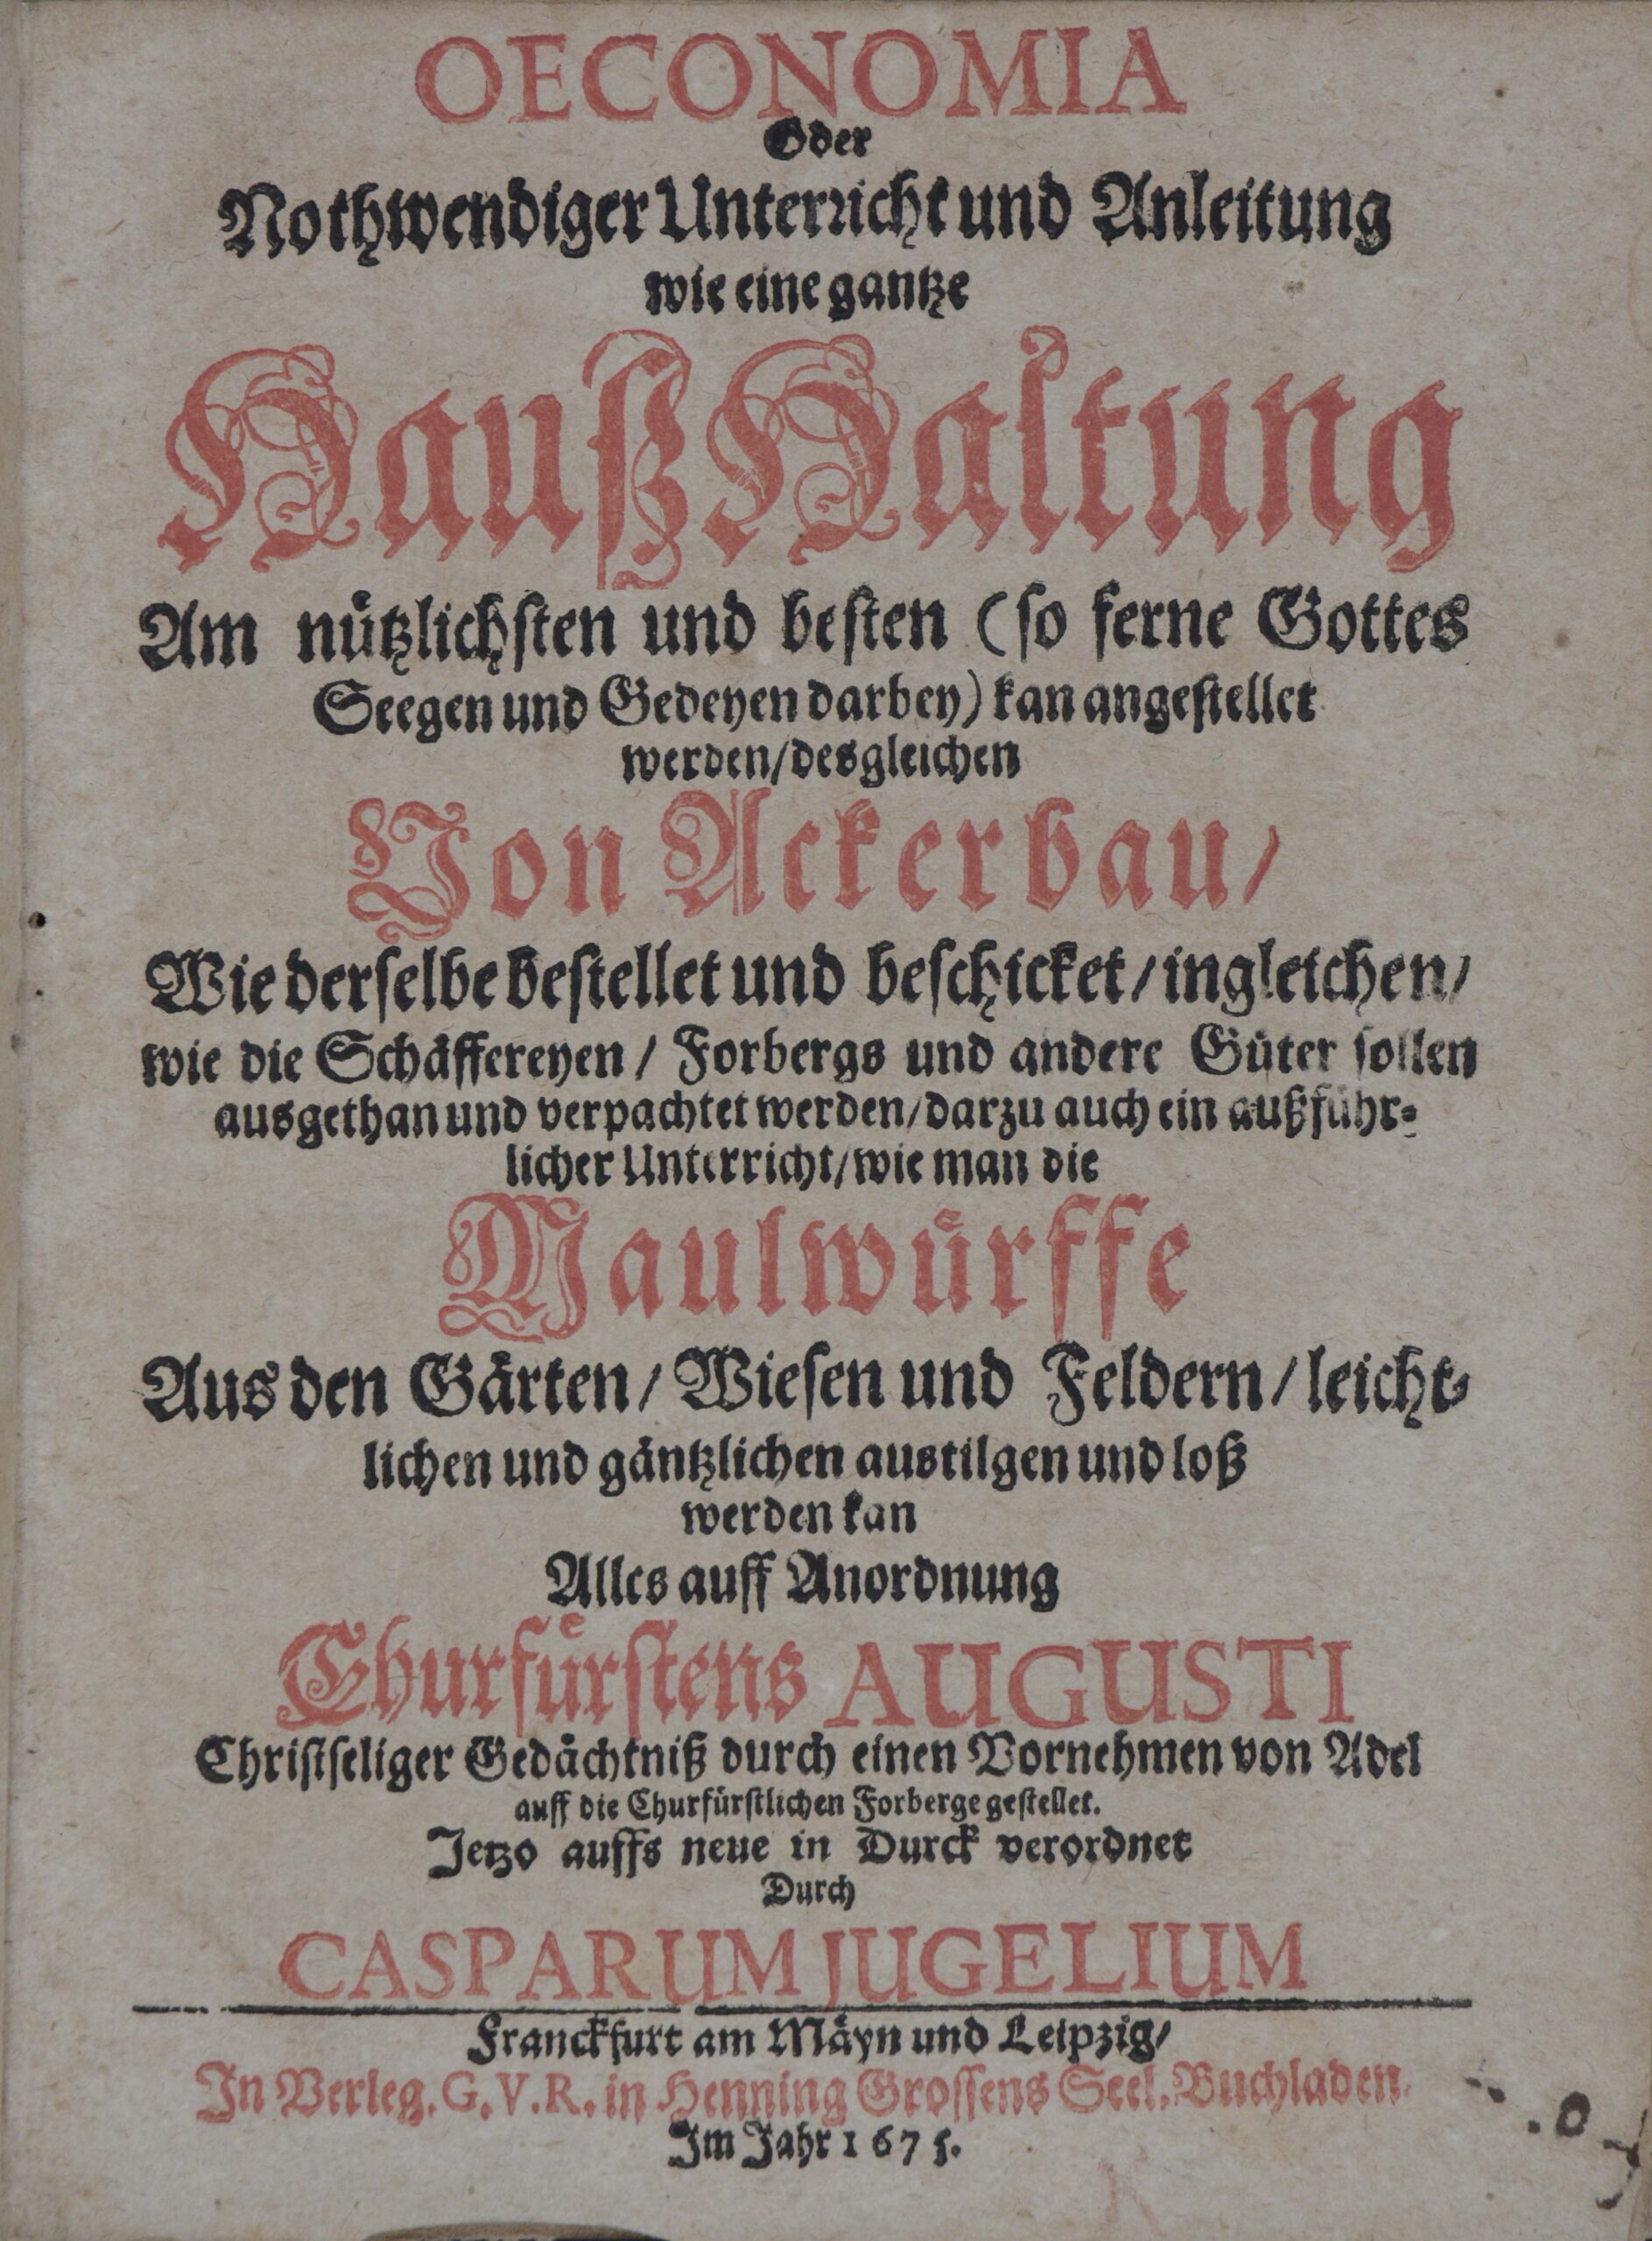 OECONOMIA
Oder
Nothwendiger Unterricht und Anleitung
wie eine gantze
Haußhaltung
Am nützlichsten und besten (so ferne Gottes
Seegen und Gedeyen darbey) kan angestellet
werden/desgleichen
Von Ackerbau/
Wie derselbe bestellet und beschicket/ingleichen/
wie die Schäffereyen/ Forbergs und andere Güter sollen
ausgethan und verpachtet werden/darzu auch ein außführ-
licher Unterricht/wie man die
Maulwürffe
Aus den Gärten/Wiesen und Feldern/leicht-
lichen und gäntzlichen austilgen und loß
werden kan
Alles auff Anordnung
Churfürstens AUGUSTI
Christseliger Gedächtniß durch einen Vornehmen von Adel
auff die Churfürstlichen Forberge gestellet.
Jetzo auffs neue in Durck verordnet
Durch
CASPARUM JUGELIUM
Franckfurt am Mäyn und Leipzig/
In Verleg. G. V. R. in Henning Grossens Seel. Buchladen.
Im Jahr 1675.